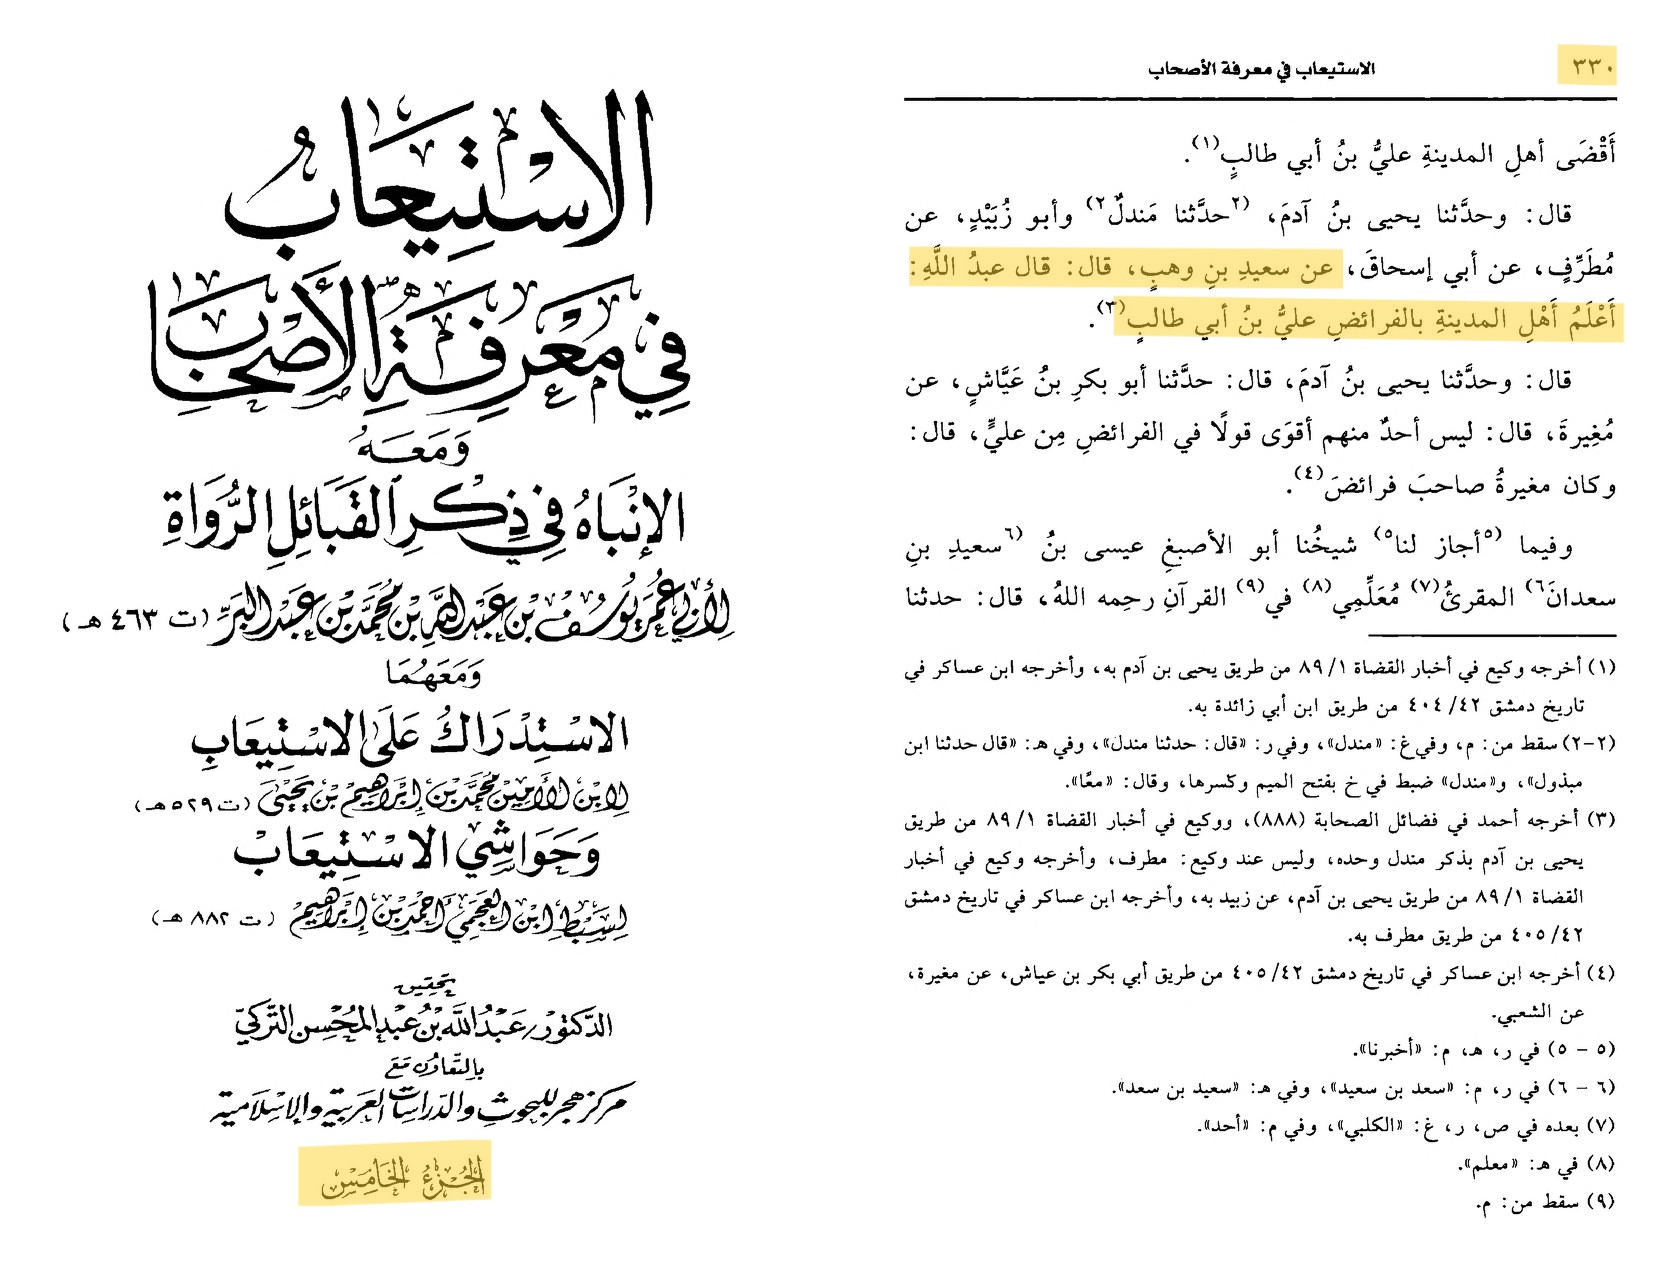 الاستيعاب
في معرفة الأصحاب
ومعه
الإنباه في ذكر القبائل الرواة
لأبي عمر يوسف بن عبد الله بن محمد بن عبد البر (ت ٤٦٣ هـ)
ومعهما
الاستدراك على الاستيعاب
لابن الأمين محمد بن إبراهيم بن يحيى (ت ٥٢٩ هـ)
وحواشي الاستيعاب
لسبط ابن العجمي أحمد بن إبراهيم (ت ٨٨٢ هـ)
تحقيق
الدكتور/عبد الله بن عبد المحسن التركي
بالتعاون مع
مركز هجر للبحوث والدراسات العربية والإسلامية
الجزء الخامس
٣٣٠ الاستيعاب في معرفة الأصحاب
أَقْضَى أهلِ المدينةِ عليُّ بنُ أبي طالبٍ(١).
قال: وحدَّثنا يحيى بنُ آدمَ، (٢حدَّثنا مَندلٌ٢) وأبو زُبَيْدٍ، عن
مُطَرِّفٍ، عن أبي إسحاقَ، عن سعيدِ بنِ وهبٍ، قال: قال عبدُ اللَّهِ:
أَعْلَمُ أَهْلِ المدينةِ بالفرائضِ عليُّ بنُ أبي طالبٍ(٣).
قال: وحدَّثنا يحيى بنُ آدمَ، قال: حدَّثنا أبو بكرِ بنُ عَيَّاشٍ، عن
مُغِيرةَ، قال: ليس أحدٌ منهم أقوَى قولًا في الفرائضِ مِن عليٍّ، قال:
وكان مغيرةُ صاحبَ فرائضَ(٤).
وفيما (٥أجاز لنا٥) شيخُنا أبو الأصبغِ عيسى بنُ (٦سعيدِ بنِ
سعدانَ٦) المقرئُ(٧) مُعَلِّمِي(٨) في(٩) القرآنِ رحِمه اللهُ، قال: حدثنا
(١) أخرجه وكيع في أخبار القضاة ١/ ٨٩ من طريق يحيى بن آدم به، وأخرجه ابن عساكر في
تاريخ دمشق ٤٢/ ٤٠٤ من طريق ابن أبي زائدة به.
(٢-٢) سقط من: م، وفي غ: «مندل»، وفي ر: «قال: حدثنا مندل»، وفي هـ: «قال حدثنا ابن
مبذول»، و«مندل» ضبط في خ بفتح الميم وكسرها، وقال: «معًا».
(٣) أخرجه أحمد في فضائل الصحابة (٨٨٨)، ووكيع في أخبار القضاة ١/ ٨٩ من طريق
يحيى بن آدم بذكر مندل وحده، وليس عند وكيع: مطرف، وأخرجه وكيع في أخبار
القضاة ١/ ٨٩ من طريق يحيى بن آدم، عن زبيد به، وأخرجه ابن عساكر في تاريخ دمشق
٤٢/ ٤٠٥ من طريق مطرف به.
(٤) أخرجه ابن عساكر في تاريخ دمشق ٤٢/ ٤٠٥ من طريق أبي بكر بن عياش، عن مغيرة،
عن الشعبي.
(٥ - ٥) في ر، هـ، م: «أخبرنا».
(٦ - ٦) في ر، م: «سعد بن سعيد»، وفي هـ: «سعيد بن سعد».
(٧) بعده في ص، ر، غ: «الكلبي»، وفي م: «أحد».
(٨) في هـ: «معلم».
(٩) سقط من: م.